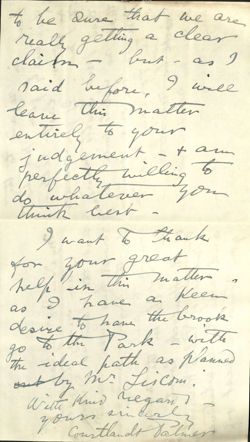 to be sure that we are
really getting a clear
claim - but - as I
said before, I will
leave this matter
entirely to your
judgement - & am
perfectly willing to
do whatever you
think best -
I want to thank
for your great
help - in this matter
as I have a keen
desire to have the brook
go to the Park - with
the ideal path as planned
out by Mr Liscom.
With kind regard -
yours sincerely
Courtlandt Palmer